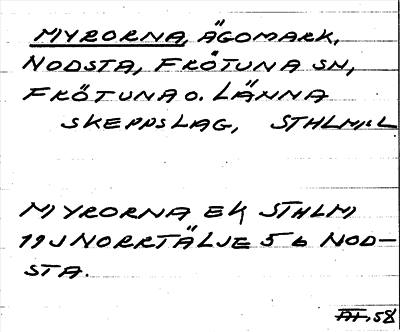 MYRORNA, ÄGOMARK,
NODSTA, FRÖTUNA SN,
FRÖTUNA O. LÄNNA
SKEPPSLAG, STHLM:L
MYRORNA EK STHLM
11J NORRTÄLJE 5b NOD-
STA.
58